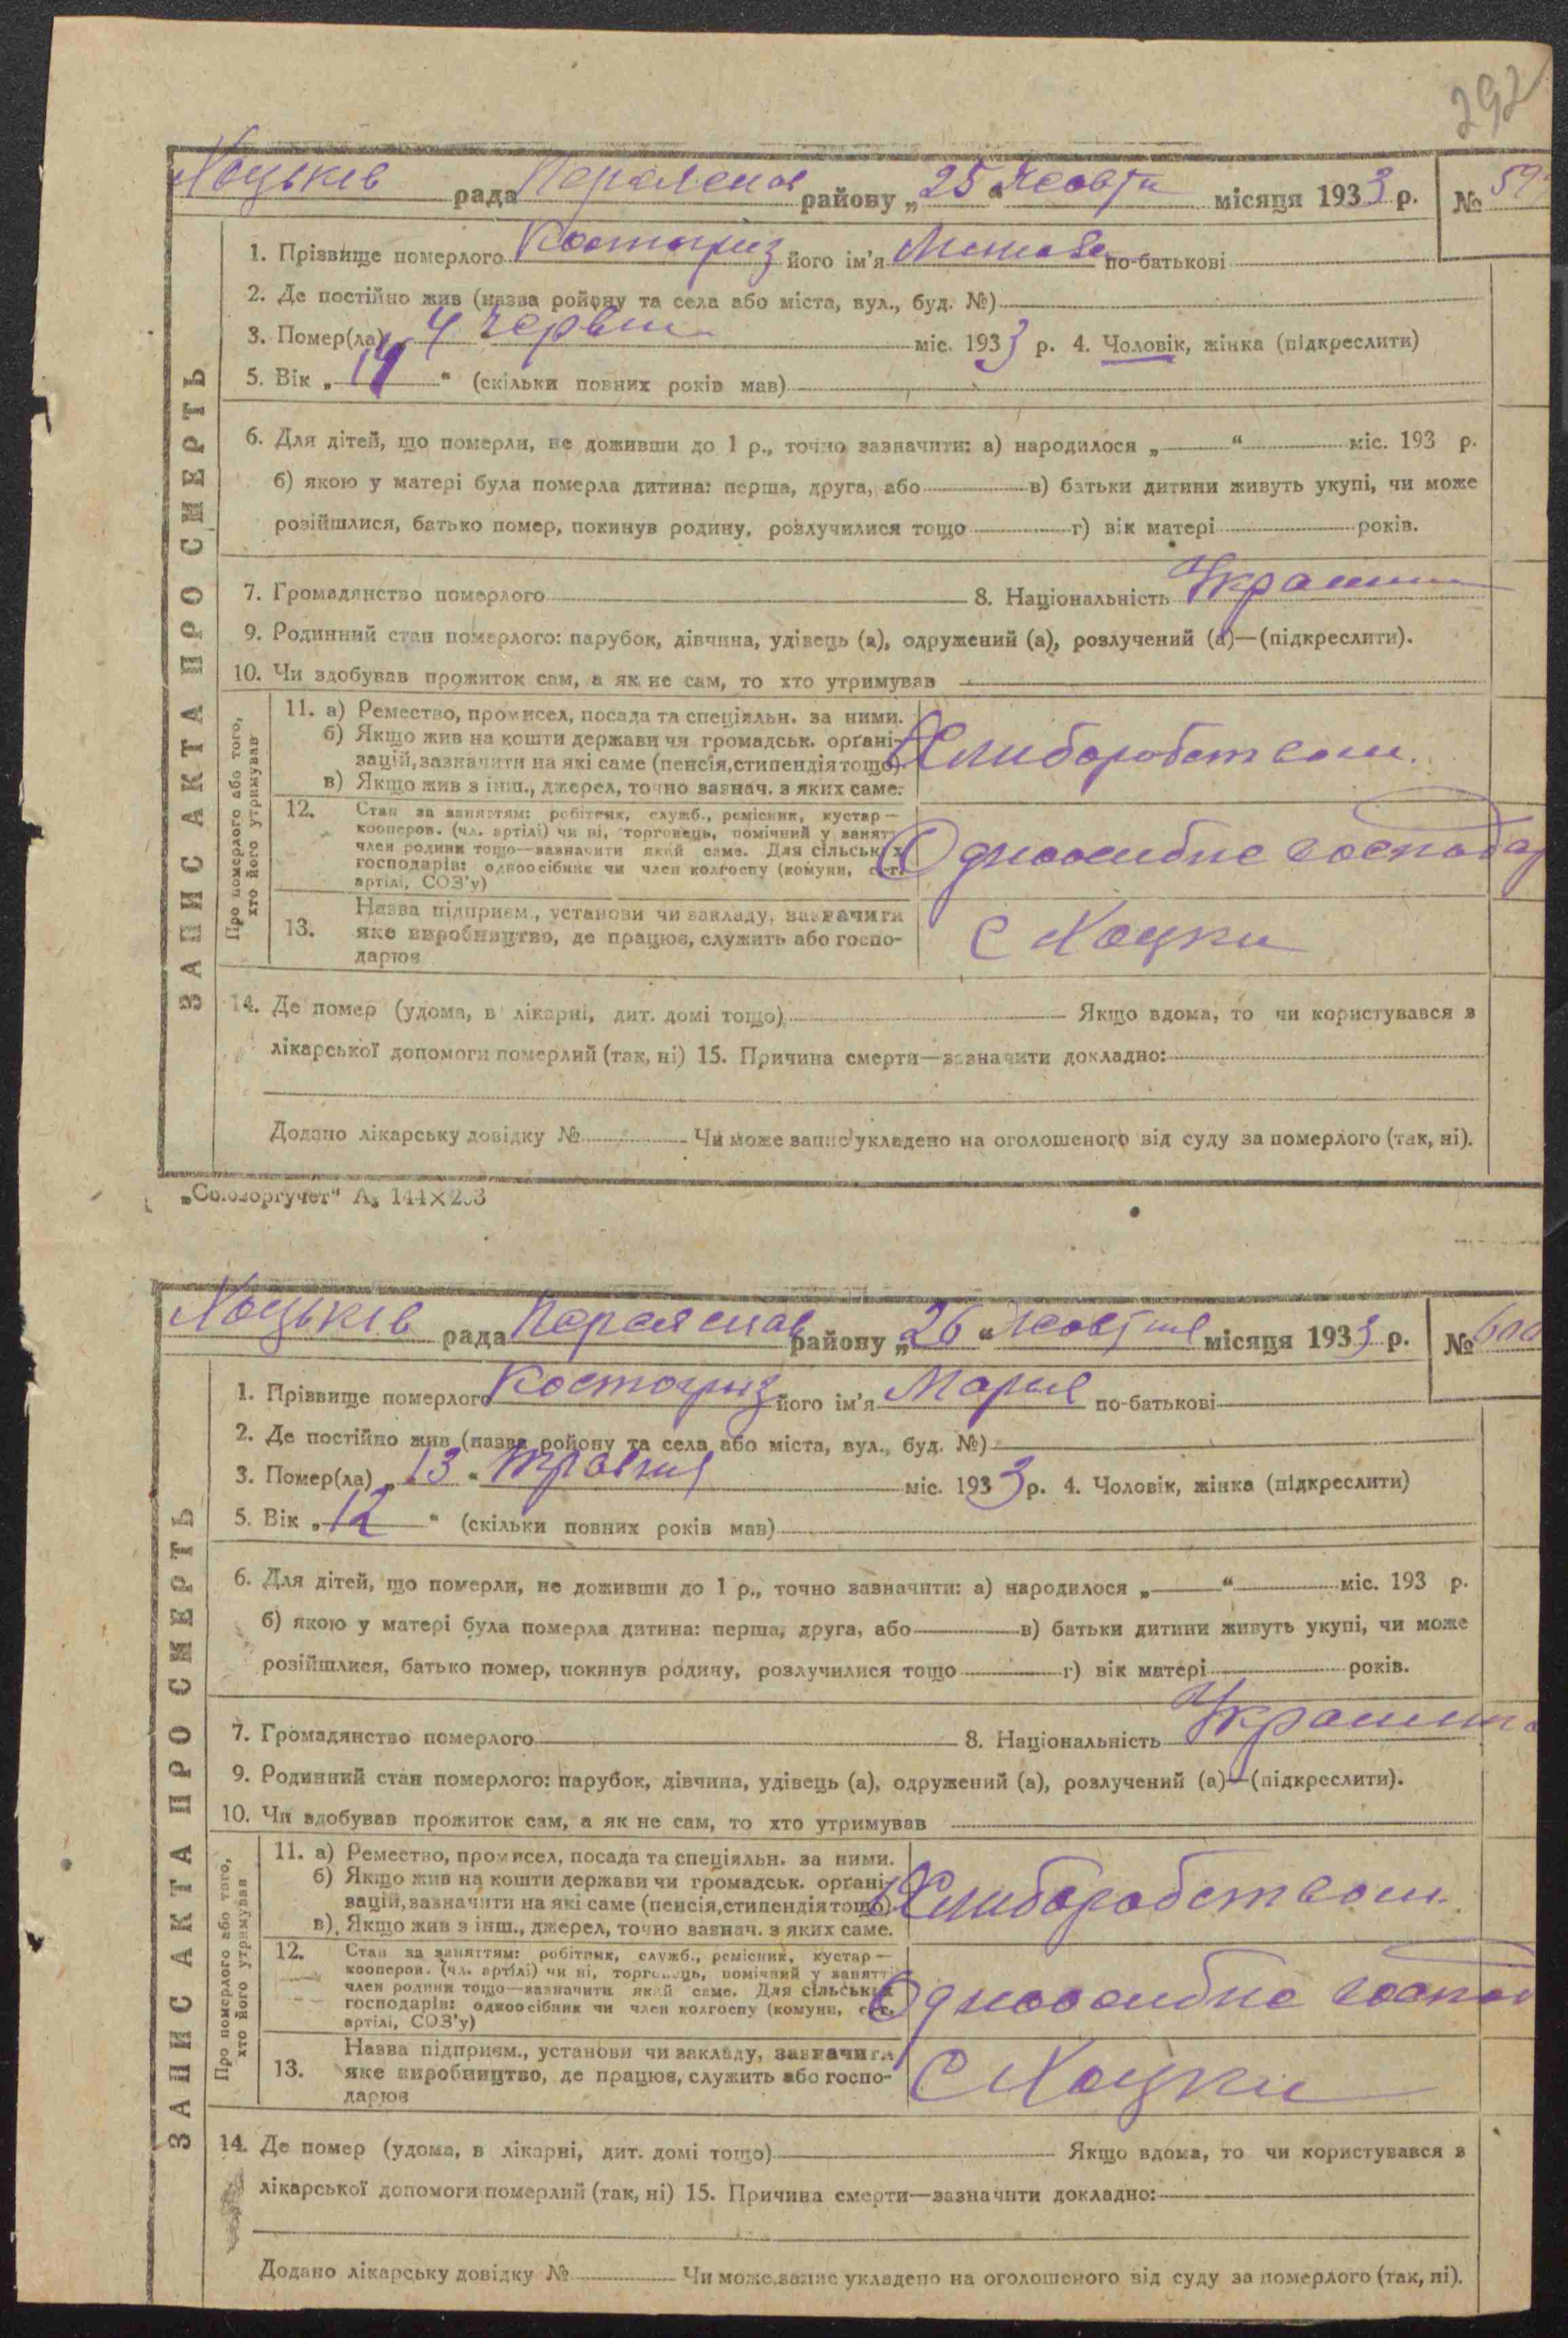 292
Хоцьків рада Переяслав району „25“ Жовтн місяця 1933 р. № 59
1. Прізвище померлого Костогриз його ім'я по-батькові
2. Де постійно жив (назва ройону та села або міста, вул., буд. №)
3. Помер(ла) „4 Червня міс. 1933 р. 4. Чоловік, жінка (підкреслити)
5. Вік „14“ (скільки повних років мав)
6. Для дітей, що померли, не доживши до 1 р., точно зазначити: а) народилося „ “ міс. 193 р.
б) якою у матері була померла дитина: перша, друга, або в) батьки дитини живуть укупі, чи може
розійшлися, батько помер, покинув родину, розлучилися тощо г) вік матері років.
7. Громадянство померлого 8. Національність Украінн
9. Родинний стан померлого: парубок, дівчина, удівець (а), одружений (а), розлучений (а)—(підкреслити).
10. Чи здобував прожиток сам, а як не сам, то хто утримував
Про померлого або того,
хто його утримував
11. а) Ремество, промисел, посада та спеціяльн. за ними.
б) Якщо жив на кошти держави чи громадськ. органі-
зацій, зазначити на які саме (пенсія, стипендія тощо)
в) Якщо жив з інш., джерел, точно вазнач. з яких саме.
Хлиборобством.
12. Стан за заняттям: робітник, служб., ремісник, кустар—
кооперов. (чл. артілі) чи ні, торговець, помічний у занятт
член родини тощо—вазначити який саме. Для сільських
господарів: одноосібник чи член колгоспу (комуни, с.-г.
артілі, СОЗ'у)
Одноосибне господар
13. Назва підприєм., установи чи вакладу, вазначити
яке виробництво, де працює, служить або госпо-
дарює
С Хоцки
14. Де помер (удома, в лікарні, дит. домі тощо) Якщо вдома, то чи користувався з
лікарської допомоги померлий (так, ні) 15. Причина смерти—вазначити докладно:
Додано лікарську довідку № Чи може запис укладено на оголошеного від суду за померлого (так, ні).
ЗАПИС АКТА ПРО СМЕРТЬ
„Союзоргучет“ А₅ 144×203
Хоцьків рада Переяслав району „26“ Жовтня місяця 1933 р. № 600
1. Прізвище померлого Костогриз його ім'я Мария по-батькові
2. Де постійно жив (назва ройону та села або міста, вул., буд. №)
3. Помер(ла) „13“ травня міс. 1933 р. 4. Чоловік, жінка (підкреслити)
5. Вік „12“ (скільки повних років мав)
6. Для дітей, що померли, не доживши до 1 р., точно зазначити: а) народилося „ “ міс. 193 р.
б) якою у матері була померла дитина: перша, друга, або в) батьки дитини живуть укупі, чи може
розійшлися, батько помер, покинув родину, розлучилися тощо г) вік матері років.
7. Громадянство померлого 8. Національність Украінн
9. Родинний стан померлого: парубок, дівчина, удівець (а), одружений (а), розлучений (а)—(підкреслити).
10. Чи здобував прожиток сам, а як не сам, то хто утримував
Про померлого або того,
хто його утримував
11. а) Ремество, промисел, посада та спеціяльн. за ними.
б) Якщо жив на кошти держави чи громадськ. органі-
вацій, вазначити на які саме (пенсія, стипендія тощо)
в) Якщо жив з інш., джерел, точно вазнач. з яких саме.
Хлиборобством.
12. Стан за заняттям: робітник, служб., ремісник, кустар—
кооперов. (чл. артілі) чи ні, торговець, помічний у занятт
член родини тощо—вазначити який саме. Для сільських
господарів: одноосібник чи член колгоспу (комуни, с.-г.
артілі, СОЗ'у)
Одноосибне господ
13. Назва підприєм., установи чи вакладу, зазначити
яке виробництво, де працює, служить або госпо-
дарює
С Хоцки
14. Де помер (удома, в лікарні, дит. домі тощо) Якщо вдома, то чи користувався з
лікарської допомоги померлий (так, ні) 15. Причина смерти—зазначити докладно:
Додано лікарську довідку № Чи може запис укладено на оголошеного від суду за померлого (так, ні).
ЗАПИС АКТА ПРО СМЕРТЬ